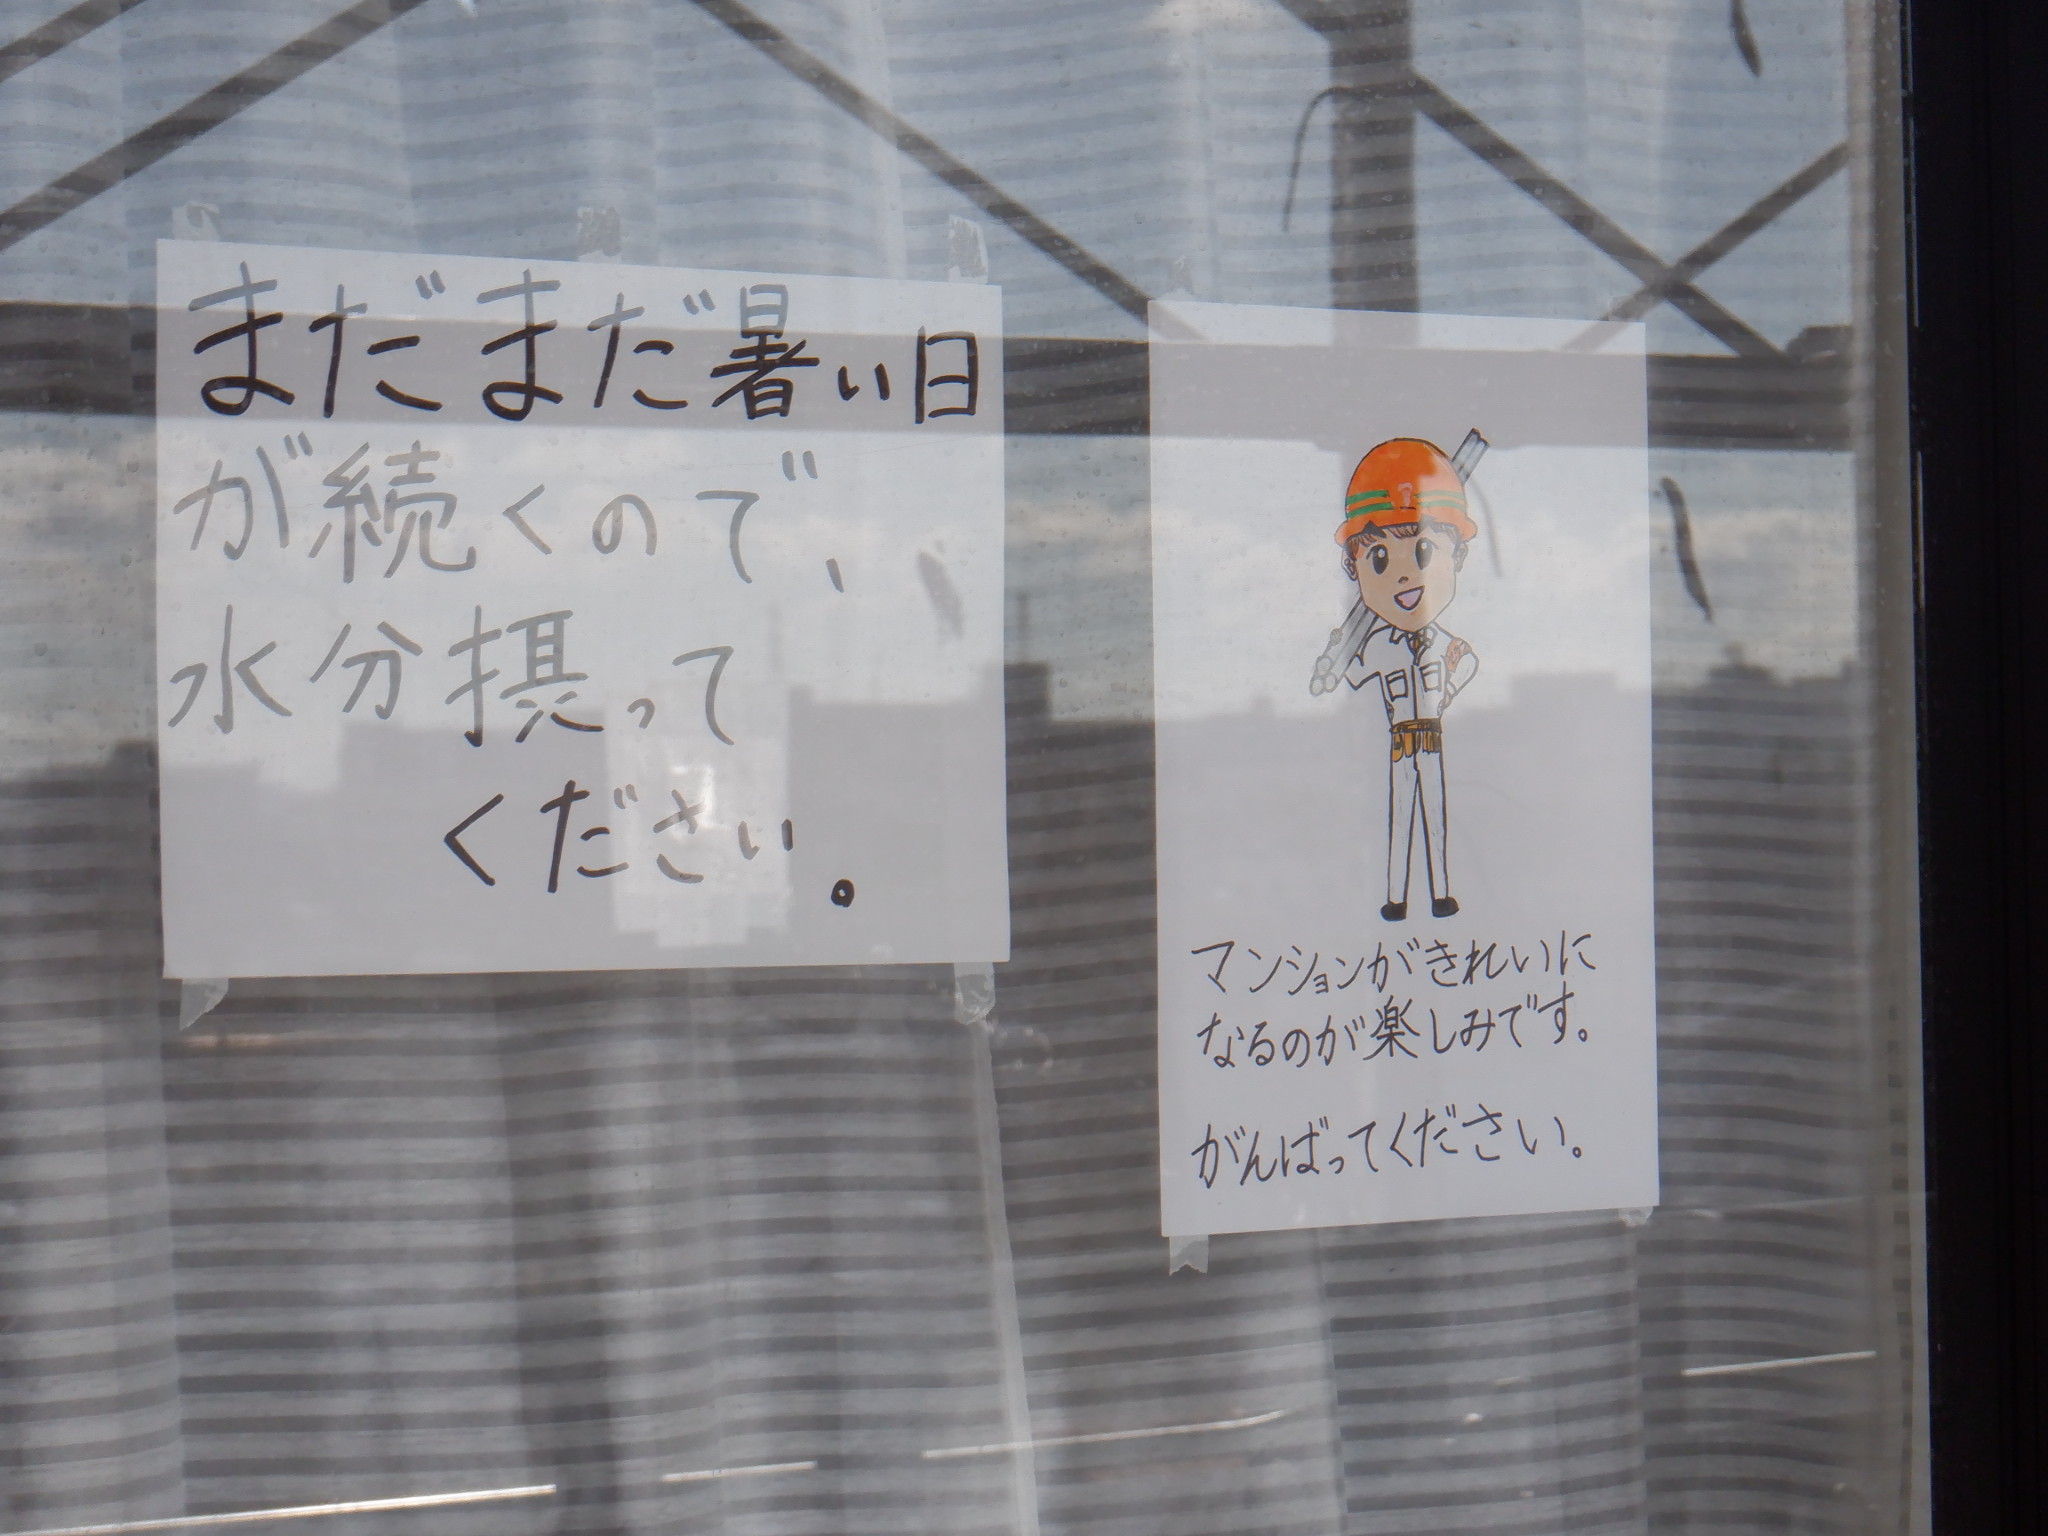 まだまだ暑い日
が続くので、
水分摂って
ください。
マンションがきれいに
なるのが楽しみです。
がんばってください。